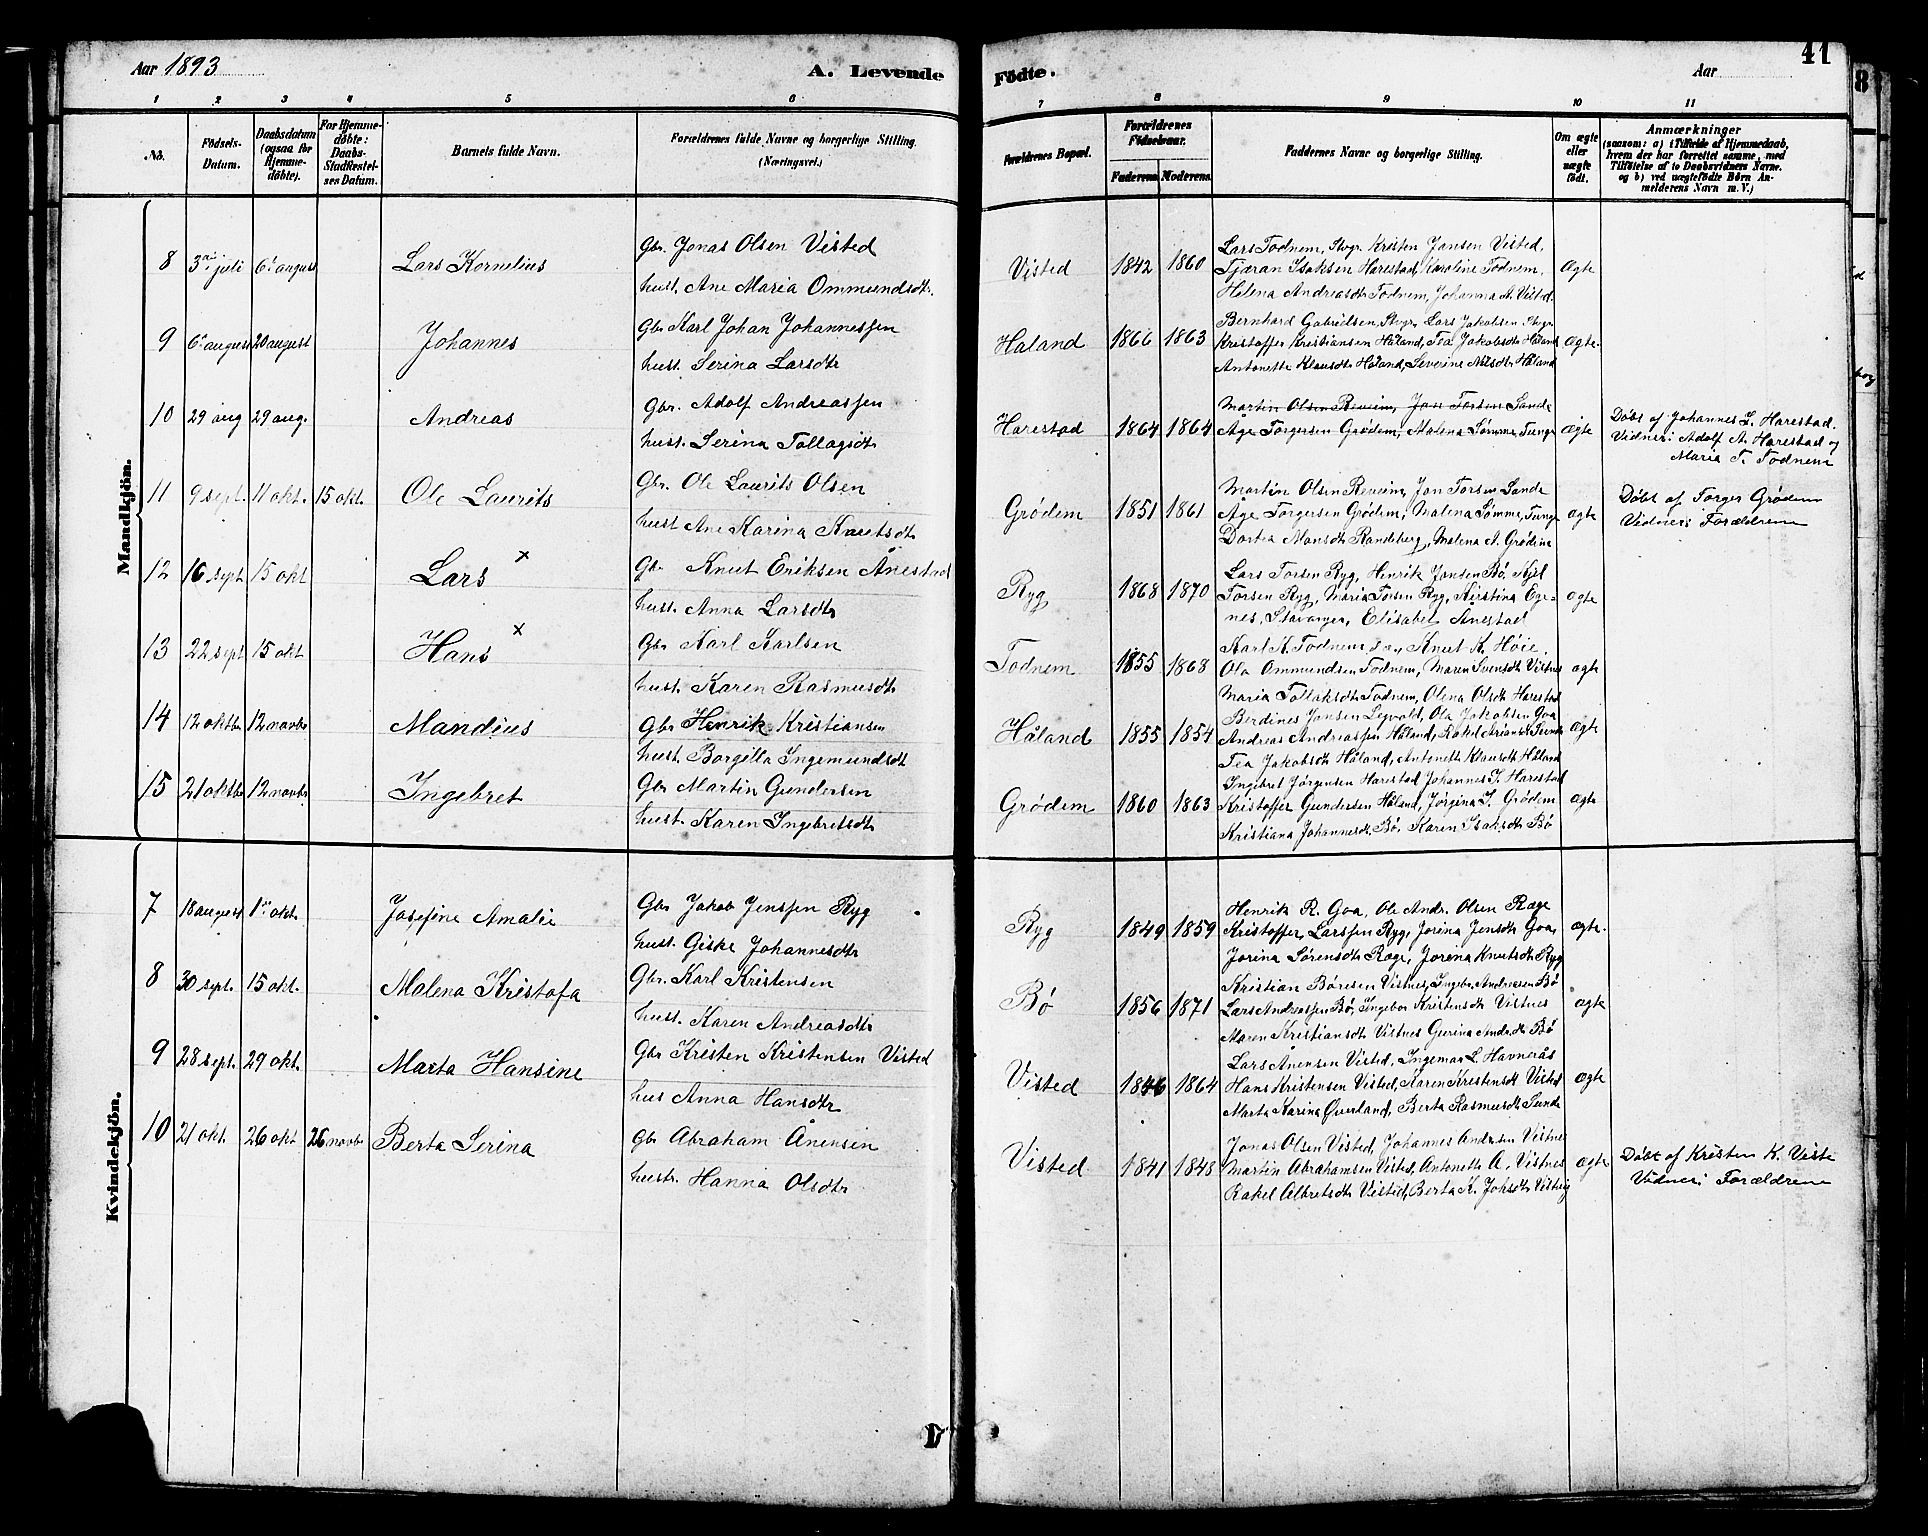 Aar 1893
A. Levende
Fødte.
Aar
41
1 2 3 4 5 6 7 8 9 10 11
No.
Fødsels-
Datum.
Daabsdatum
(ogsaa for
Hjemme-
døbte).
For Hjemme-
døbte:
Daabs-
Stadfæstel-
ses Datum.
Barnets fulde Navn.
Forældrenes fulde Navne og borgerlige Stilling.
(Næringsvei.)
Forældrenes Bopæl.
Forældrenes
Fødselsaar.
Faderens. Moderens.
Faddernes Navne og borgerlige Stilling.
Om ægte
eller
uægte
født.
Anmærkninger
(saasom: a) i Tilfælde af Hjemmedaab,
hvem der har forrettet samme, med
Tilføielse af to Daabsvidners Navne.
og b) ved uægtefødte Børn An-
melderens Navn m. V.)
Mandkjøn.
8 3die juli 6te august Lars Kornelius Gbr. Jonas Olsen Visted
hust. Ane Maria Ommundsdtr.
Visted 1842 1860 Ægte
Lars Todnem, Stvgr. Kristen Jansen Visted,
Tjæran Isaksen Harestad, Karoline Todnem,
Helena Andreasdtr Todnem, Johanna A. Visted.
9 6te august 20 august Johannes Gbr Karl Johan Johannessen
hust. Serina Larsdtr
Håland 1866 1863 Ægte.
Bernhard Gabrielsen, Stvgr, Lars Jakobsen Stvgr
Kristoffer Kristiansen Håland, Tea Jakobsdtr Håland
Antonette Klausdtr Håland, Severine Nilsdtr Håland
10 29 aug 29 aug. Andreas Gbr. Adolf Andreassen
hust. Serina Tollagsdtr
Harestad 1864 1864 ægte
Martin Olsen Reveim, Jon Torsen Sande
Åge Torgersen Grødem, Malena Sømme, Tunge
Døbt af Johannes L. Harestad.
Vidner: Adolf A. Harestad og
Maria T. Todnem
11 9 sept. 11 okt. 15 okt. Ole Laurits Gbr. Ole Laurits Olsen
hust Ane Karina Knutsdtr
Grødem 1851 1861 ægte
Martin Olsen Reveim, Jon Torsen Sande
Åge Torgersen Grødem, Malena Sømme, Tunge
Dortea Monsdtr Randeberg, Malena A. Grødem
Døbt af Torger Grødem
Vidner: Forældrene
12 16 sept 15 okt Lars x Gbr Knut Eriksen Ånestad
hust. Anna Larsdtr
Ryg 1868 1870 ægte
Lars Torsen Ryg, Henrik Jonsen Bø, Kjel
Torsen Ryg, Maria Torsen Ryg, Kirstina Ege-
nes, Stavanger, Elisabet Ånestad
13 22 sept 15 okt Hans x Gbr Karl Karlsen
hust. Karen Rasmusdtr
Todnem 1855 1868 ægte
Karl K. Todnem, Knut K. Høie.
Ola Ommundsen Todnem, Maren Svensdtr Vistnes
Maria Tollaksdtr Todnem, Olena Olsdtr Harestad
14 12 oktbr 12 novbr Mandius Gbr Henrik Kristiansen
hust. Borgilla Ingemundsdtr
Håland 1855 1854 ægte
Berdines Jansen Legvold, Ola Jakobsen Goa
Andreas Andreassen Håland, Rakel Sunde
Tea Jakobsdtr Håland, Antonette Klausdtr Håland
15 21 oktbr 12 novbr Ingebret Gbr Martin Gundersen
hust. Karen Ingebretsdtr
Grødem 1860 1863 ægte
Ingebret Jørgensen Harestad Johannes T. Harestad
Kristoffer Gundersen Håland, Jørgina I. Grødem
Kristiana Johannesdtr. Bø, Karen Isaksdtr Bø
Kvindekjøn.
7 18 august 1ste okt. Josefine Amalie Gbr Jakob Jenssen Ryg
hust. Giske Johannesdtr
Ryg 1849 1859 ægte.
Henrik R. Goa, Ole Andr. Olsen Røge
Kristoffer Larssen Ryg, Jorina Jensdtr Goa,
Jorina Sørensdtr Røge, Jorina Knutsdtr Ryg
8 30 sept. 15 okt. Malena Kristofa Gbr. Karl Kristensen
hust. Karen Andreasdtr
Bø 1856 1871 ægte
Kristian Børesen Vistnes, Ingebr. Andreasen Bø
Lars Andreassen Bø, Ingebor Kristensdtr Vistnes
Maren Kristiansdtr Vistnes Gurina Andr.dtr Bø
9 28 sept. 29 okt. Marta Hansine Gbr Kristen Kristensen Visted
hus Anna Hansdtr
Visted 1846 1864 ægte
Lars Ånensen Visted, Ingemar L. Havnerås
Hans Kristensen Visted, Karen Kristensdtr Visted
Marta Karina Qverland, Berta Rasmusdtr Sunde
10 21 okt. 26 okt 26 novbr Berta Serina Gbr Abraham Ånensen
hustr. Hanna Olsdtr
Visted 1841 1848 ægte
Jonas Olsen Visted, Johannes Andersen Vistnes
Martin Abrahamsen Visted, Antonette A. Vistnes
Rakel Albretsdtr Visted, Berta K. Johsdtr
Døbt af Kristen K. Viste
Vidner: Forældrene